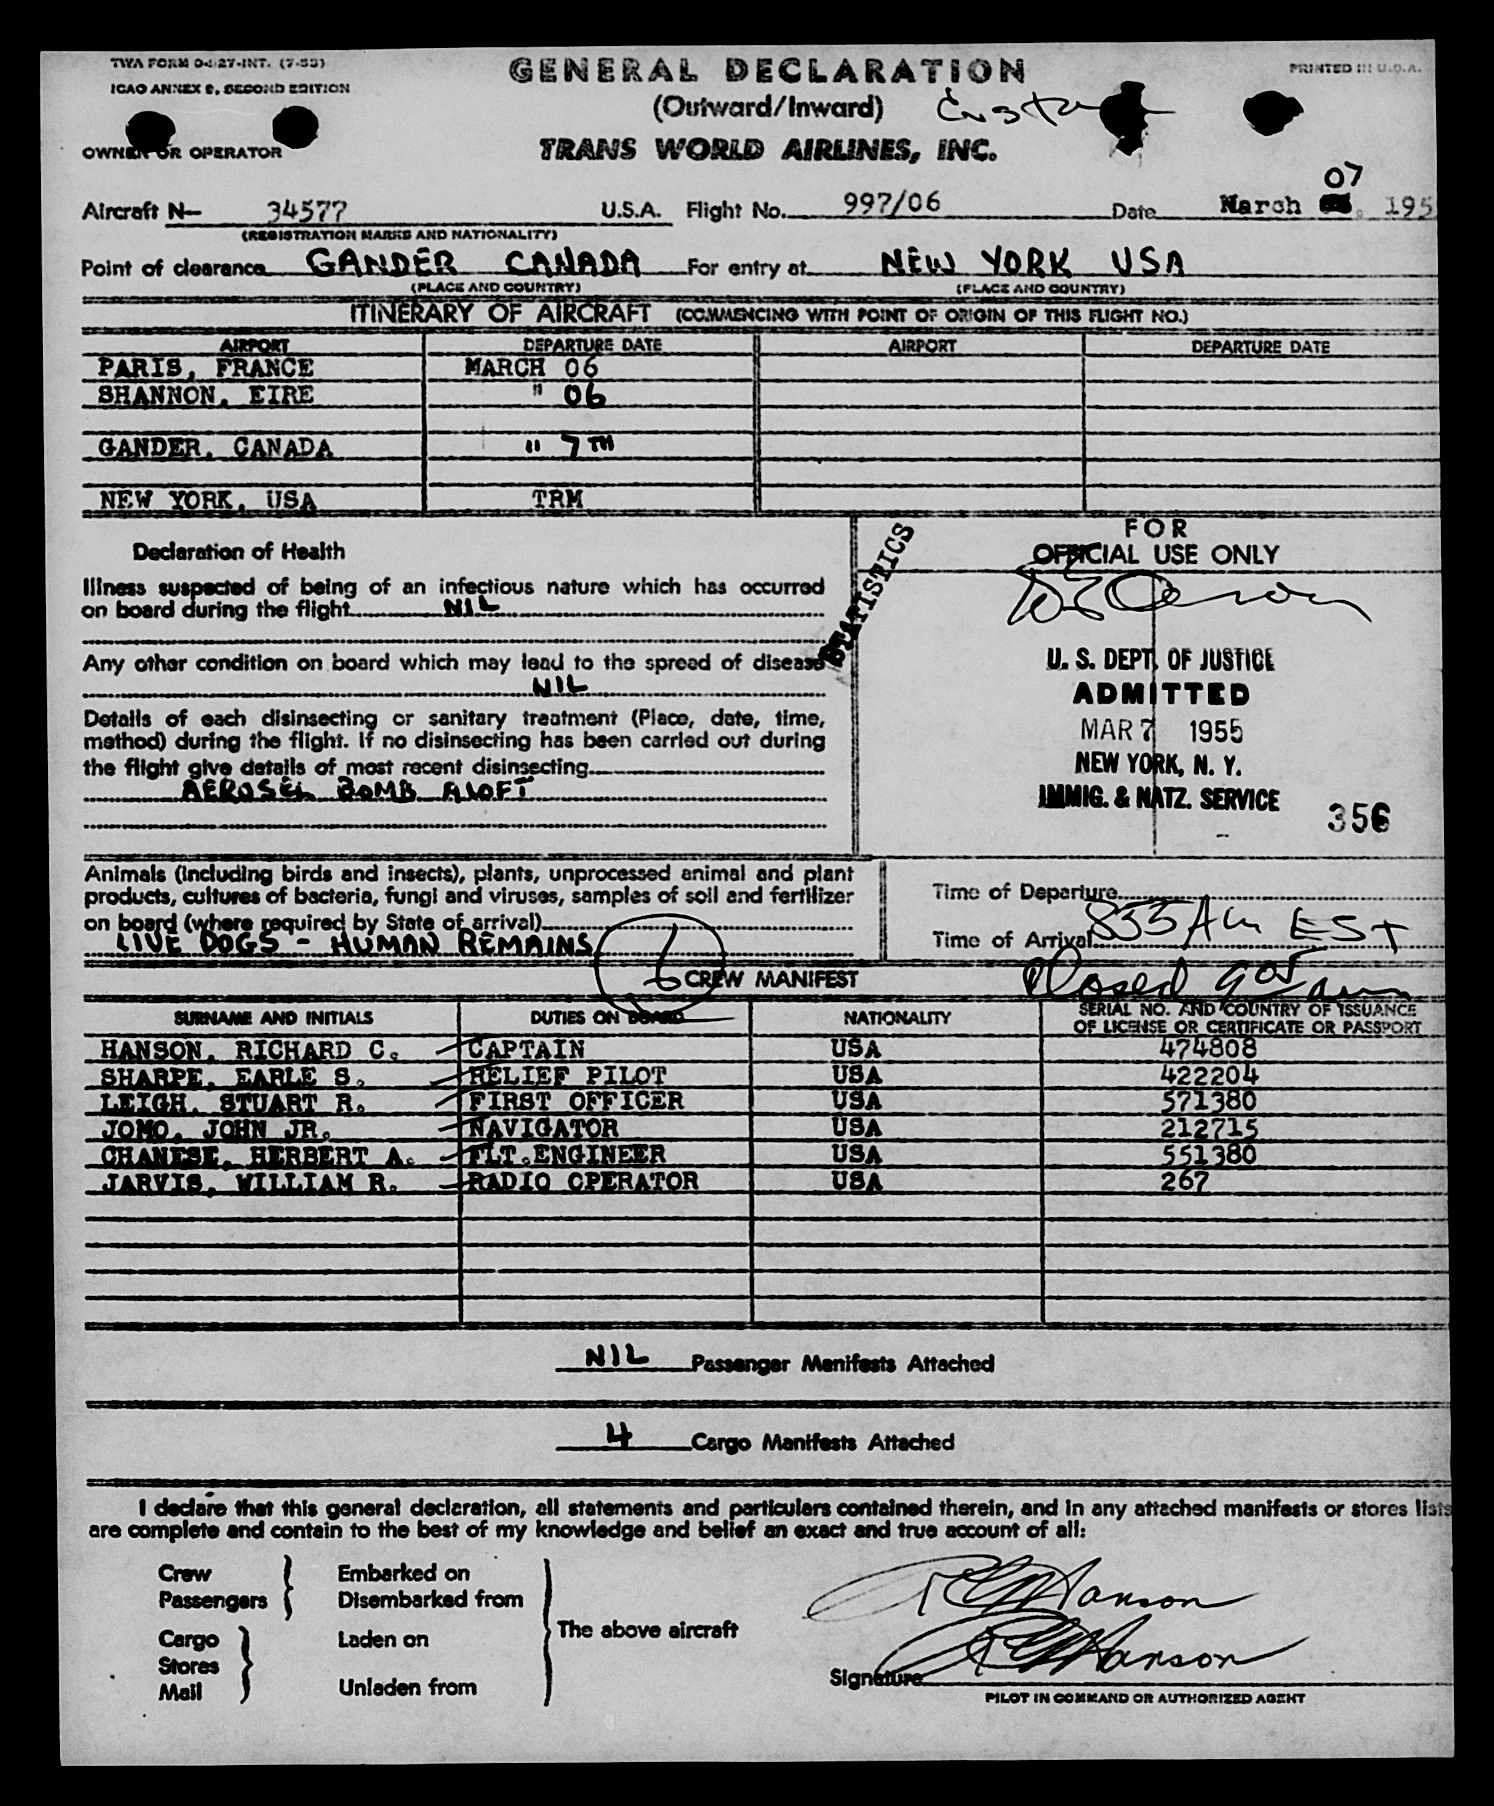 TWA FORM O-427-INT. (7-53)
ICAO ANNEX 9, SECOND EDITION
PRINTED IN U.S.A.
GENERAL DECLARATION
(Outward/Inward)
OWNER OR OPERATOR
TRANS WORLD AIRLINES, INC.
07
Aircraft N- 34577 U.S.A. Flight No. 997/06 Date March 195
(REGISTRATION MARKS AND NATIONALITY)
Point of clearance GANDER CANADA For entry at NEW YORK USA
(PLACE AND COUNTRY) (PLACE AND COUNTRY)
ITINERARY OF AIRCRAFT (COMMENCING WITH POINT OF ORIGIN OF THIS FLIGHT NO.)
AIRPORT DEPARTURE DATE AIRPORT DEPARTURE DATE
PARIS, FRANCE MARCH 06
SHANNON, EIRE " 06
GANDER, CANADA " 7TH
NEW YORK, USA TRM
Declaration of Health
Illness suspected of being of an infectious nature which has occurred
on board during the flight NIL
Any other condition on board which may lead to the spread of disease
NIL
Details of each disinsecting or sanitary treatment (Place, date, time,
method) during the flight. If no disinsecting has been carried out during
the flight give details of most recent disinsecting
AEROSEL BOMB ALOFT
STATISTICS
FOR
OFFICIAL USE ONLY
U. S. DEPT. OF JUSTICE
ADMITTED
MAR 7 1955
NEW YORK, N. Y.
IMMIG. & NATZ. SERVICE
356
Animals (including birds and insects), plants, unprocessed animal and plant
products, cultures of bacteria, fungi and viruses, samples of soil and fertilizer
on board (where required by State of arrival)
LIVE DOGS - HUMAN REMAINS
Time of Departure
Time of Arrival 855 AM EST
Closed 905 am
6
CREW MANIFEST
SURNAME AND INITIALS DUTIES ON BOARD NATIONALITY SERIAL NO. AND COUNTRY OF ISSUANCE
OF LICENSE OR CERTIFICATE OR PASSPORT
HANSON, RICHARD C. CAPTAIN USA 474808
SHARPE, EARLE S. RELIEF PILOT USA 422204
LEIGH, STUART R. FIRST OFFICER USA 571380
JOMO, JOHN JR. NAVIGATOR USA 212715
CHANESE, HERBERT A. FLT.ENGINEER USA 551380
JARVIS, WILLIAM R. RADIO OPERATOR USA 267
NIL Passenger Manifests Attached
4 Cargo Manifests Attached
I declare that this general declaration, all statements and particulars contained therein, and in any attached manifests or stores lists
are complete and contain to the best of my knowledge and belief an exact and true account of all:
Crew
Passengers
Embarked on
Disembarked from
Cargo
Stores
Mail
Laden on
Unladen from
The above aircraft
RC Hanson
RC Hanson
Signature
PILOT IN COMMAND OR AUTHORIZED AGENT